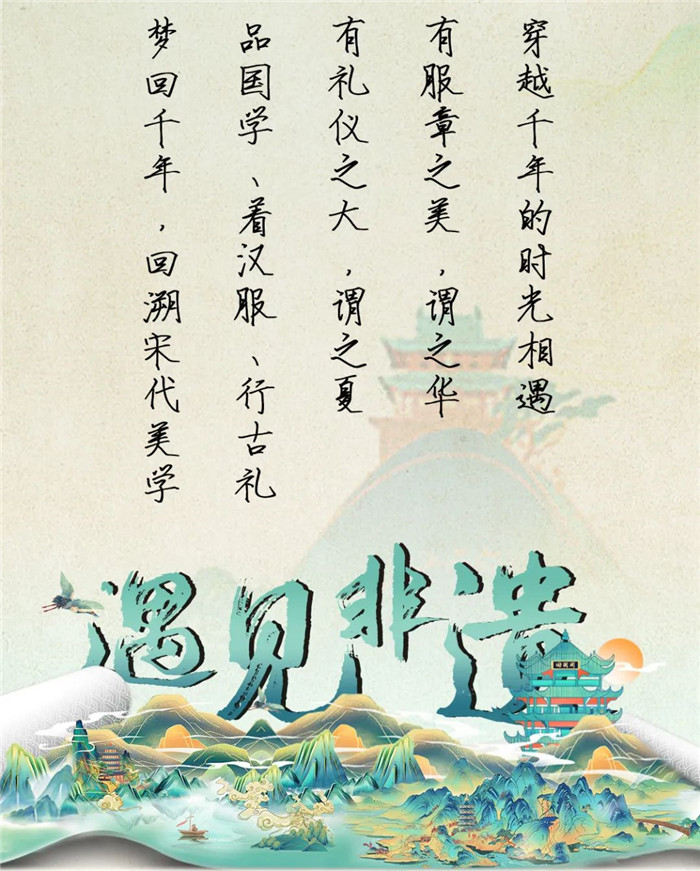 穿越千年的时光相遇
有服章之美，谓之华
有礼仪之大，谓之夏
品国学、着汉服、行古礼
梦回千年，回溯宋代美学
遇见非遗